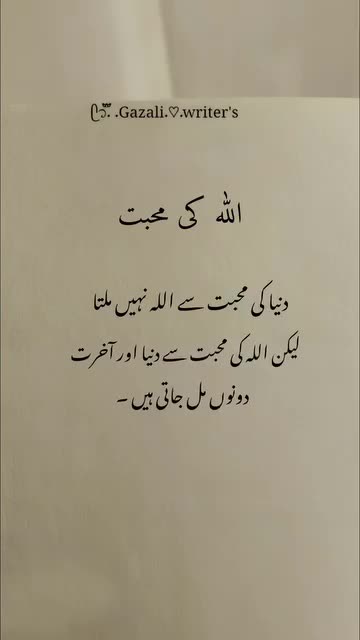 .Gazali.♡.writer's
اللہ کی محبت
دنیا کی محبت سے اللہ نہیں ملتا
لیکن اللہ کی محبت سے دنیا اور آخرت
دونوں مل جاتی ہیں ۔